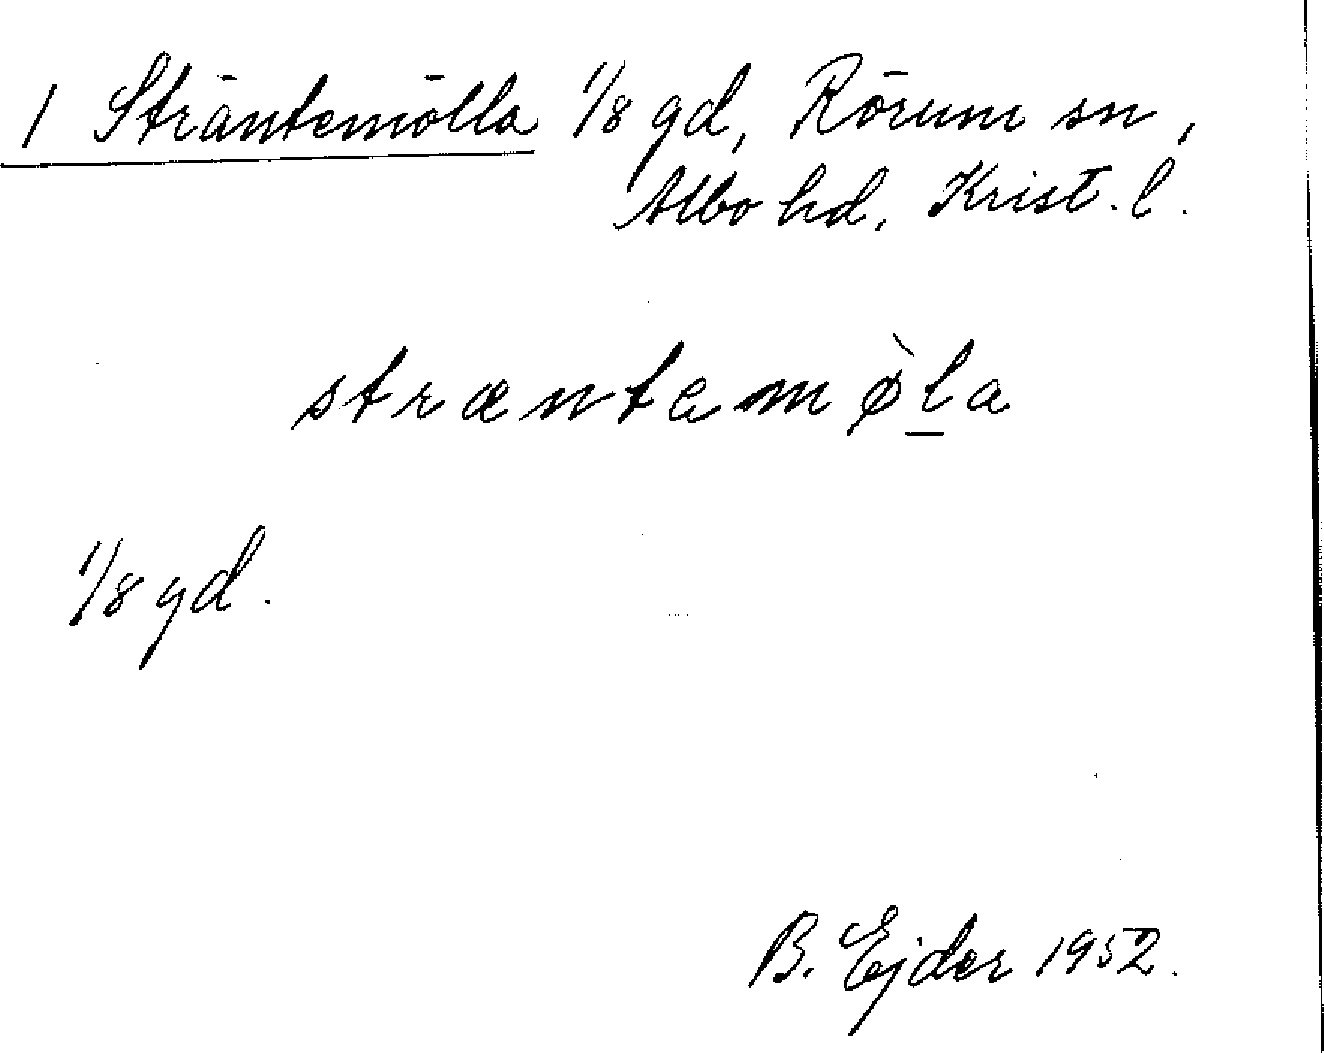 1 Sträntemölla 1/8 gd, Rörum sn,
Albo hd, Krist. l.
stræntemø̀l̲a
1/8 gd.
B. Ejder 1952.